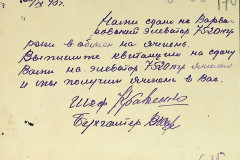 Нами сдано на Варва-
ровский элеватор 7520 кгр
ржи в обмен на ячмень.
Выпишите квитанции на сдачу
Вами на элеватор 7520 кгр ячменя
и мы получим ячмень в Вас.
Шеф
Бухгалтер